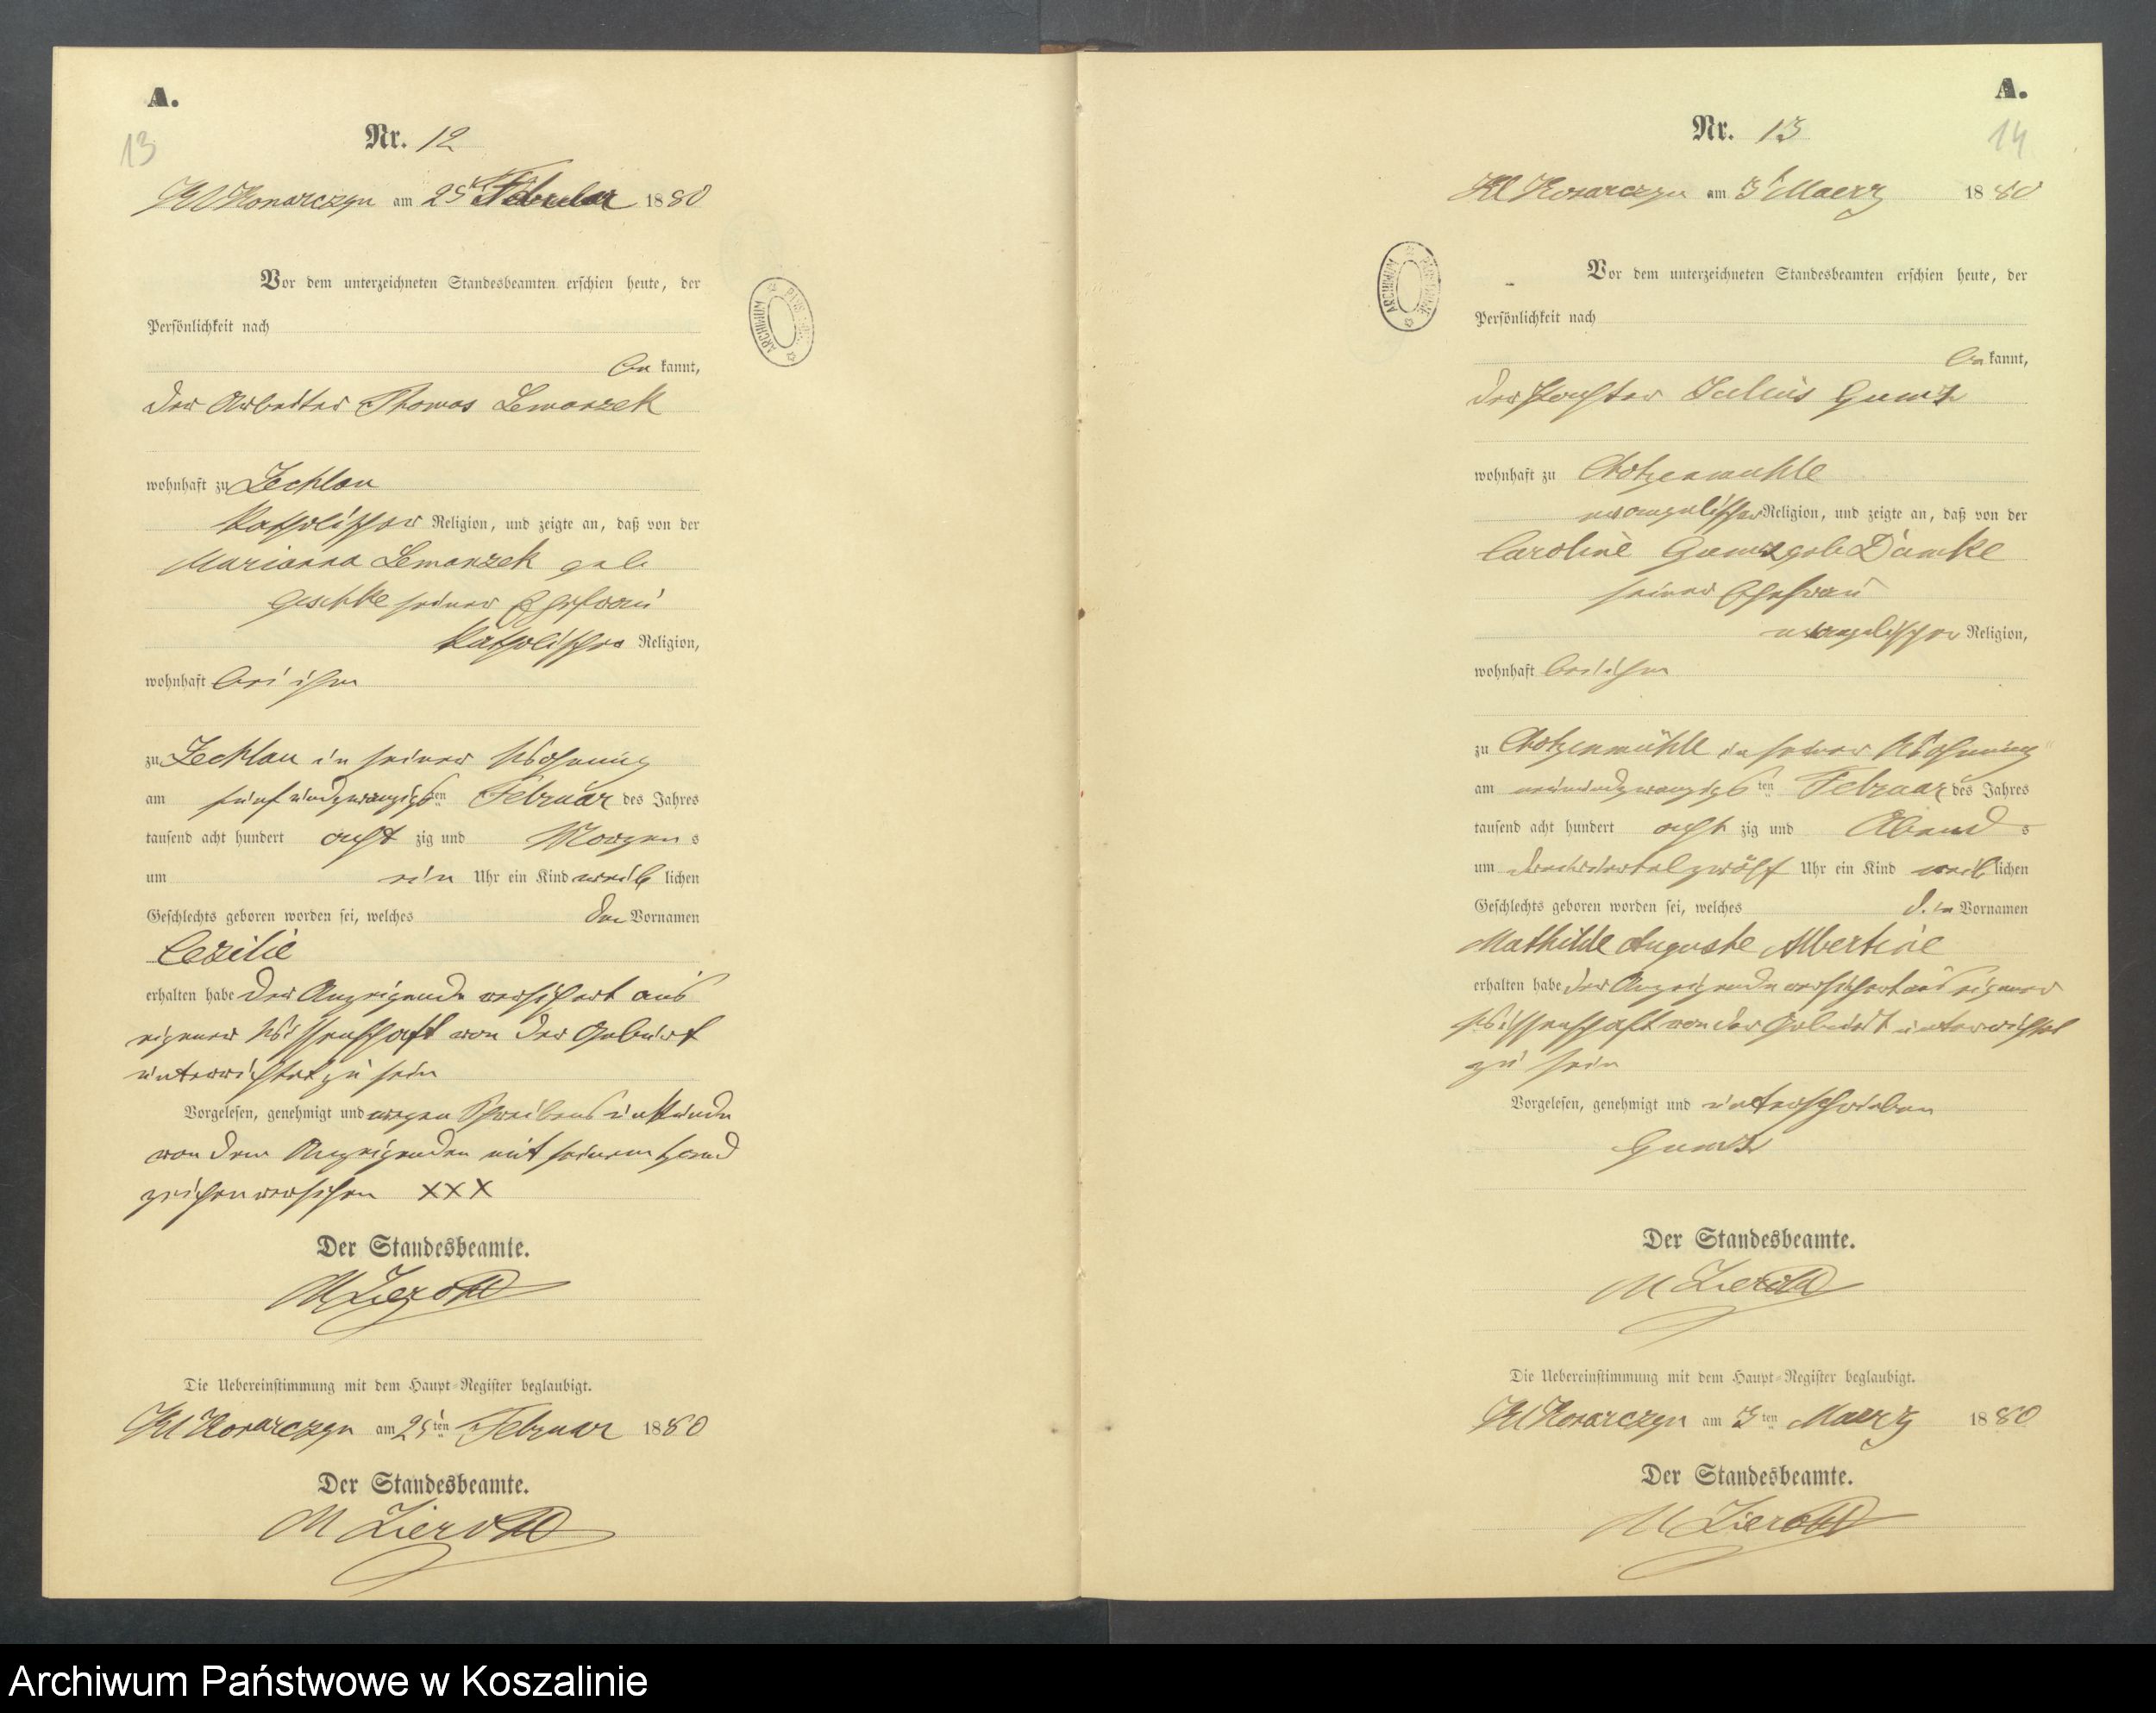 A.
13
Nr. 12
Kl Konarczyn am 25t Februar 1880
Vor dem unterzeichneten Standesbeamten erschien heute, der
Persönlichkeit nach
be kannt,
der Arbeiter Thomas Lemanzek
wohnhaft zu Zechlau
katholischer Religion, und zeigte an, daß von der
Marianna Lemanzek geb.
Geschke seiner Ehefrau
katholischer Religion,
wohnhaft bei ihm
zu Zechlau in seiner Wohnung
am fünfundzwanzigsten Februar des Jahres
tausend acht hundert acht zig und Morgens
um ein Uhr ein Kind weib lichen
Geschlechts geboren worden sei, welches den Vornamen
Cezilie
erhalten habe der Anzeigende versichert aus
eigener Wissenschaft von der Geburt
unterrichtet zu sein
Vorgelesen, genehmigt und wegen Schreibens unkunde
von dem Anzeigenden mit seinem Hand
zeichen versehen XXX
Der Standesbeamte.
M Zieroth
Die Uebereinstimmung mit dem Haupt-Register beglaubigt.
Kl Konarczyn am 25ten Februar 1880
Der Standesbeamte.
M Zieroth
A.
14
Nr. 13
Kl Konarczyn am 3t Maerz 1880
ARCHIWUM PAŃSTWOWE
Vor dem unterzeichneten Standesbeamten erschien heute, der
Persönlichkeit nach
be kannt,
der Julius Gumz
wohnhaft zu
evangelischer Religion, und zeigte an, daß von der
Caroline Gumz geb Damke
seiner Ehefrau
evangelischer Religion,
wohnhaft bei ihm
zu in seiner Wohnung
am neunundzwanzigsten Februar des Jahres
tausend acht hundert acht zig und Abends
um dreiviertelzwölf Uhr ein Kind weib lichen
Geschlechts geboren worden sei, welches die Vornamen
Mathilde Auguste Albertine
erhalten habe der Anzeigende versichert aus eigener
Wissenschaft von der Geburt unterrichtet
zu sein
Vorgelesen, genehmigt und unterschrieben
Gumz
Der Standesbeamte.
M Zieroth
Die Uebereinstimmung mit dem Haupt-Register beglaubigt.
Kl Konarczyn am 3ten Maerz 1880
Der Standesbeamte.
M Zieroth
Archiwum Państwowe w Koszalinie